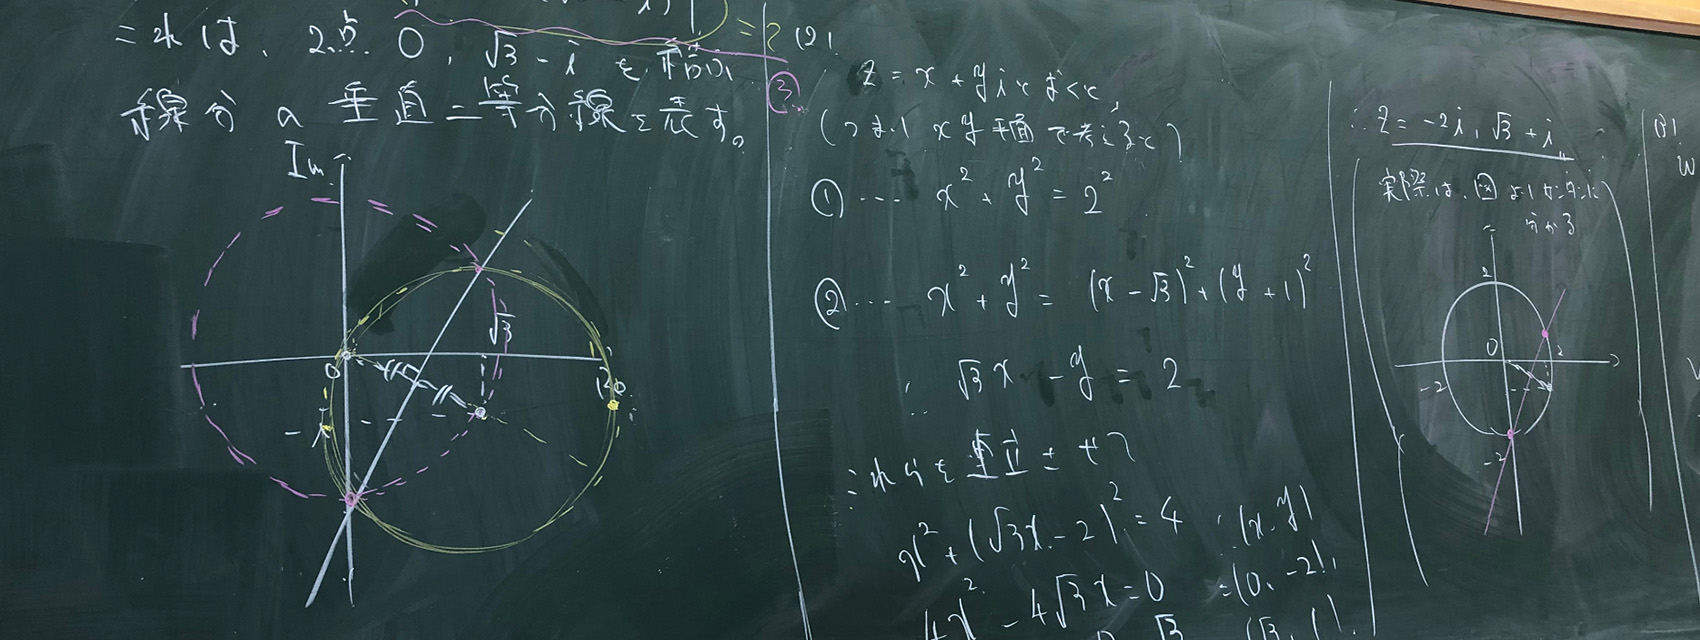 これは、2点 0, √3 - i を結ぶ
線分の垂直二等分線を表す。
Im
0
√3
-1
= 2
③
(2)
z = x + yi とおくと、
(つまり xy平面で考えると)
① … x² + y² = 2²
② … x² + y² = (x - √3)² + (y + 1)²
∴ √3x - y = 2
これらを連立して
x² + (√3x - 2)² = 4
4x² - 4√3x = 0
∴ (x, y)
= (0, -2),
(√3, 1).
∴ z = -2i, √3 + i
実際は、図よりただちに
分かる
2
0
2
-2
-2
(3)
W